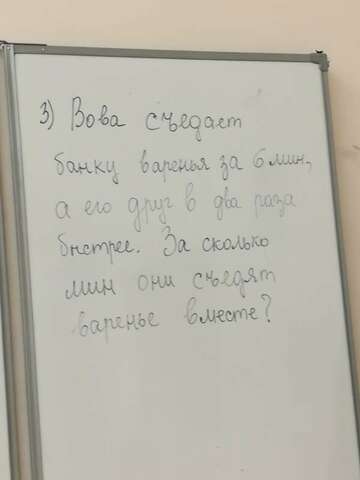 3) Вова съедает
банку варенья за 6 мин,
а его друг в два раза
быстрее. За сколько
мин они съедят
варенье вместе?